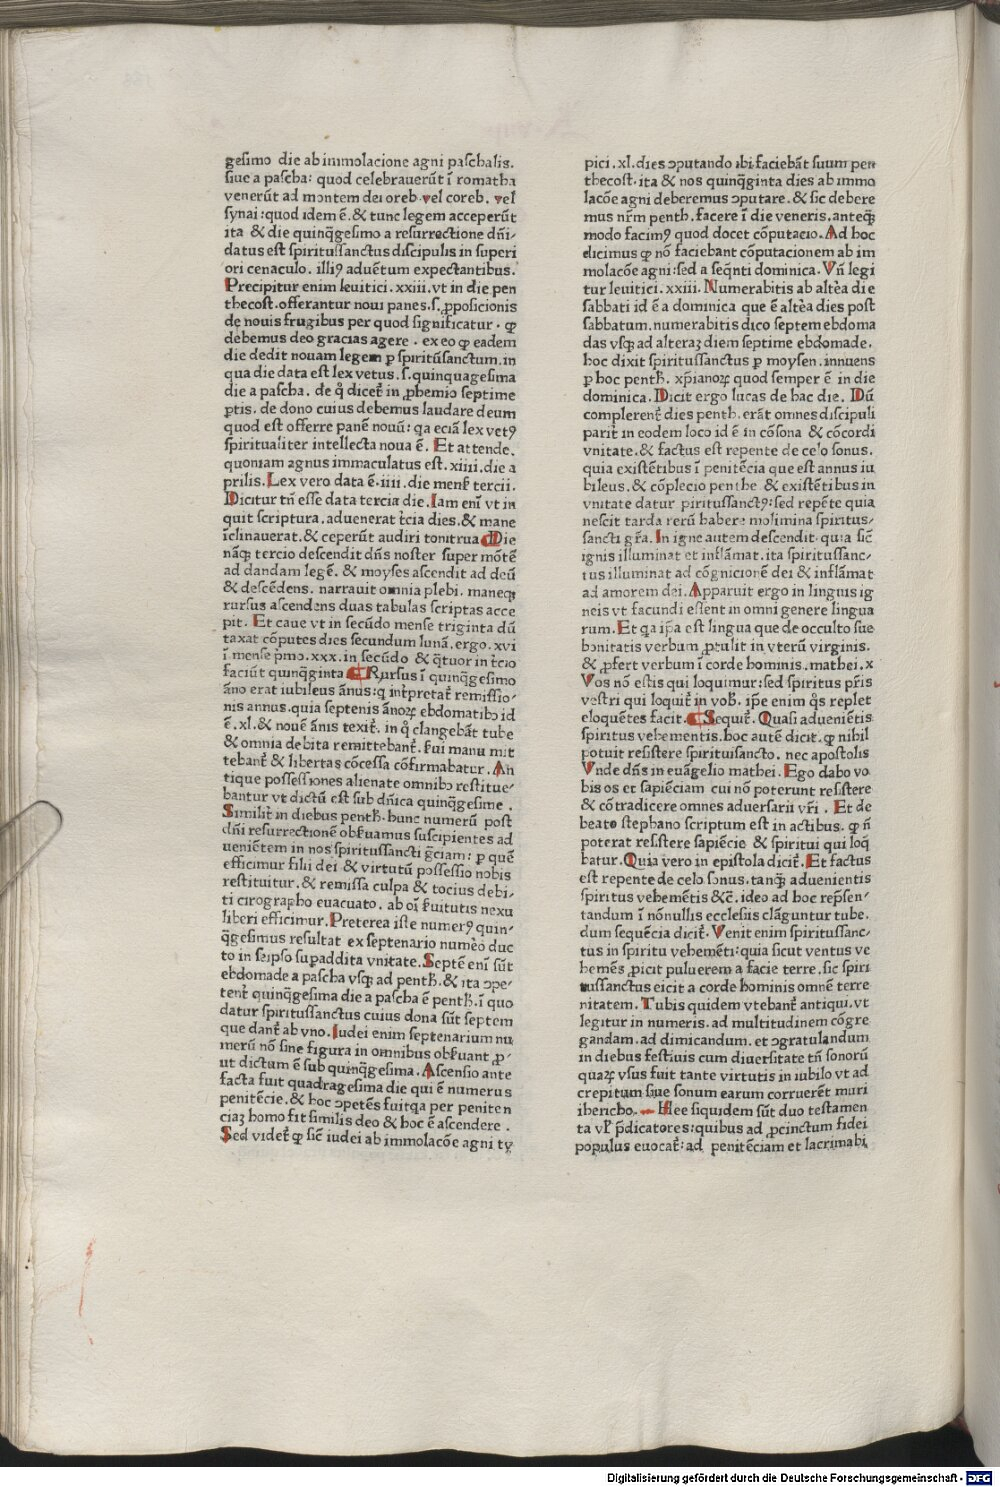 gesimo die ab immolacione agni paschalis.
siue a pascha: quod celebrauerūt ī romatha
venerūt ad montem dei oreb. vel coreb. vel
synai: quod idem ē. & tunc legem acceperūt
ita & die quinq̄gesimo a resurrectione dñi
datus est spiritussanctus discipulis in superi
ori cenaculo. illi⁹ aduētum expectantibus.
Precipitur enim leuitici. xxiii. vt in die pen
thecost. offerantur noui panes. s. ꝓposicionis
de nouis frugibus per quod significatur. ꝙ
debemus deo gracias agere. ex eo ꝙ eadem
die dedit nouam legem ꝑ spiritūsanctum. in
qua die data est lex vetus. s. quinquagesima
die a pascha. de q̄ dicet᷑ in ꝓhemio septime
ꝑtis. de dono cuius debemus laudare deum
quod est offerre panē nouū: qa eciā lex vet⁹
spiritualiter intellecta noua ē. Et attende.
quoniam agnus immaculatus est. xiiii. die a
prilis. Lex vero data ē. iiii. die mens̄ tercii.
Dicitur tñ esse data tercia die. Iam enī vt in
quit scriptura. aduenerat t̄cia dies. & mane
īclinauerat. & ceperūt audiri tonitrua Die
nāꝙ tercio descendit dñs noster super mōtē
ad dandam legē. & moyses ascendit ad deū
& descēdens. narrauit omnia plebi. maneqꝫ
rursus ascendens duas tabulas scriptas acce
pit. Et caue vt in secūdo mense triginta dū
taxat cōputes dies secundum lunā. ergo. xvi
ī mense pmo. xxx. in secūdo & q̄tuor in t̄cio
faciūt quinq̄ginta Rursus ī quinq̄gesimo
āno erat iubileus ānus: q int̄pretat᷑ remissio
nis annus. quia septenis ānoꝝ ebdomatibꝫ id
ē. xl. & nouē ānis texit᷑. in q̄ clangebāt tube
& omnia debita remittebant᷑. s̄ui manu mit
tebant᷑ & libertas cōcessa cōfirmabatur. An
tique possessiones alienate omnibꝫ restitue
bantur vt dictū est sub dñica quinq̄gesime.
Similit᷑ in diebus penth. hunc numerū post
dñi resurrectionē obs̄uamus suscipientes ad
ueniētem in nos spiritussancti gr̄ciam: ꝑ quē
efficimur filii dei & virtutū possessio nobis
restituitur. & remissa culpa & tocius debi
ti cirographo euacuato. ab oī s̄uitutis nexu
liberi efficimur. Preterea iste numer⁹ quin
q̄gesimus resultat ex septenario numēo duc
to in seipso suꝑaddita vnitate. Septē enī sūt
ebdomade a pascha vsqꝫ ad penth. & ita ↄpe
tent᷑ quinq̄gesima die a pascha ē penth. ī quo
datur spiritussanctus cuius dona sūt septem
que dant᷑ ab vno. Iudei enim septenarium nu
merū nō sine figura in omnibus obs̄uant ꝓ
ut dictum ē sub quinq̄gesima. Ascensio ante
facta fuit quadragesima die qui ē numerus
penitēcie. & hoc ↄpetēs fuit qa per peniten
ciaꝫ homo fit similis deo & hoc ē ascendere.
Sed videt᷑ ꝙ sic̄ iudei ab immolacōe agni ty
pici. xl. dies ↄputando ibi faciebāt suum pen
thecost. ita & nos quinq̄ginta dies ab immo
lacōe agni deberemus ↄputare. & sic debere
mus nrm̄ penth. facere ī die veneris. anteqꝫ
modo facim⁹ quod docet cōputacio. Ad hoc
dicimus ꝙ nō faciebant cōputacionem ab im
molacōe agni: sed a seq̄nti dominica. Vñ legi
tur leuitici. xxiii. Numerabitis ab altēa die
sabbati id ē a dominica que ē altēa dies post
sabbatum. numerabitis dico septem ebdoma
das vsqꝫ ad alteraꝫ diem septime ebdomade.
hoc dixit spiritussanctus ꝑ moysen. innuens
ꝑ hoc penth. xp̄ianoꝝ quod semper ē in die
dominica. Dicit ergo lucas de hac die. Dū
complerent᷑ dies penth. erāt omnes discipuli
parit᷑ in eodem loco id ē in cōsona & cōcordi
vnitate. & factus est repente de celo sonus.
quia existētibus ī penitēcia que est annus iu
bileus. & cōplecio penthe & existētibus in
vnitate datur piritussanct⁹: sed repēte quia
nescit tarda rerū habere molimina spiritus
sancti gr̄a. In igne autem descendit. quia sic̄
ignis illuminat et inflāmat. ita spiritussanc
tus illuminat ad cōgnicionē dei & inflāmat
ad amorem dei. Apparuit ergo in linguis ig
neis vt facundi essent in omni genere lingua
rum. Et qa ip̄a est lingua que de occulto sue
bonitatis verbum ꝓtulit in vterū virginis.
& ꝓfert verbum ī corde hominis. mathei. x
Vos nō estis qui loquimur: sed spiritus pr̄is
vestri qui loquit᷑ in vob. ip̄e enim q̄s replet
eloquētes facit. Sequit᷑. Quasi adueniētis
spiritus vehementis. hoc autē dicit. ꝙ nihil
potuit resistere spirituisancto. nec apostolis
Vnde dñs in euāgelio mathei. Ego dabo vo
bis os et sapiēciam cui nō poterunt resistere
& cōtradicere omnes aduersarii vr̄i. Et de
beato stephano scriptum est in actibus. ꝙ ñ
poterat resistere sapiēcie & spiritui qui loq̄
batur. Quia vero in epistola dicit᷑. Et factus
est repente de celo sonus. tanqꝫ aduenientis
spiritus vehemētis &c̄. ideo ad hoc rep̄sen
tandum ī nōnullis ecclesiis clāguntur tube.
dum sequēcia dicit᷑. Venit enim spiritussanc
tus in spiritu vehemēti: quia sicut ventus ve
hemēs ꝓicit puluerem a facie terre. sic spiri
tussanctus eicit a corde hominis omnē terre
nitatem. Tubis quidem vtebant᷑ antiqui. vt
legitur in numeris. ad multitudinem cōgre
gandam. ad dimicandum. et ↄgratulandum
in diebus festiuis cum diuersitate tñ sonorū
quaꝝ vsus fuit tante virtutis in iubilo vt ad
crepitum siue sonum earum corruerēt muri
ihericho. Hee siquidem sūt duo testamen
ta vl̄ p̄dicatores: quibus ad ꝓcinctum fidei
populus euocat᷑: ad penitēciam et lacrimabi
Digitalisierung gefördert durch die Deutsche Forschungsgemeinschaft - DFG